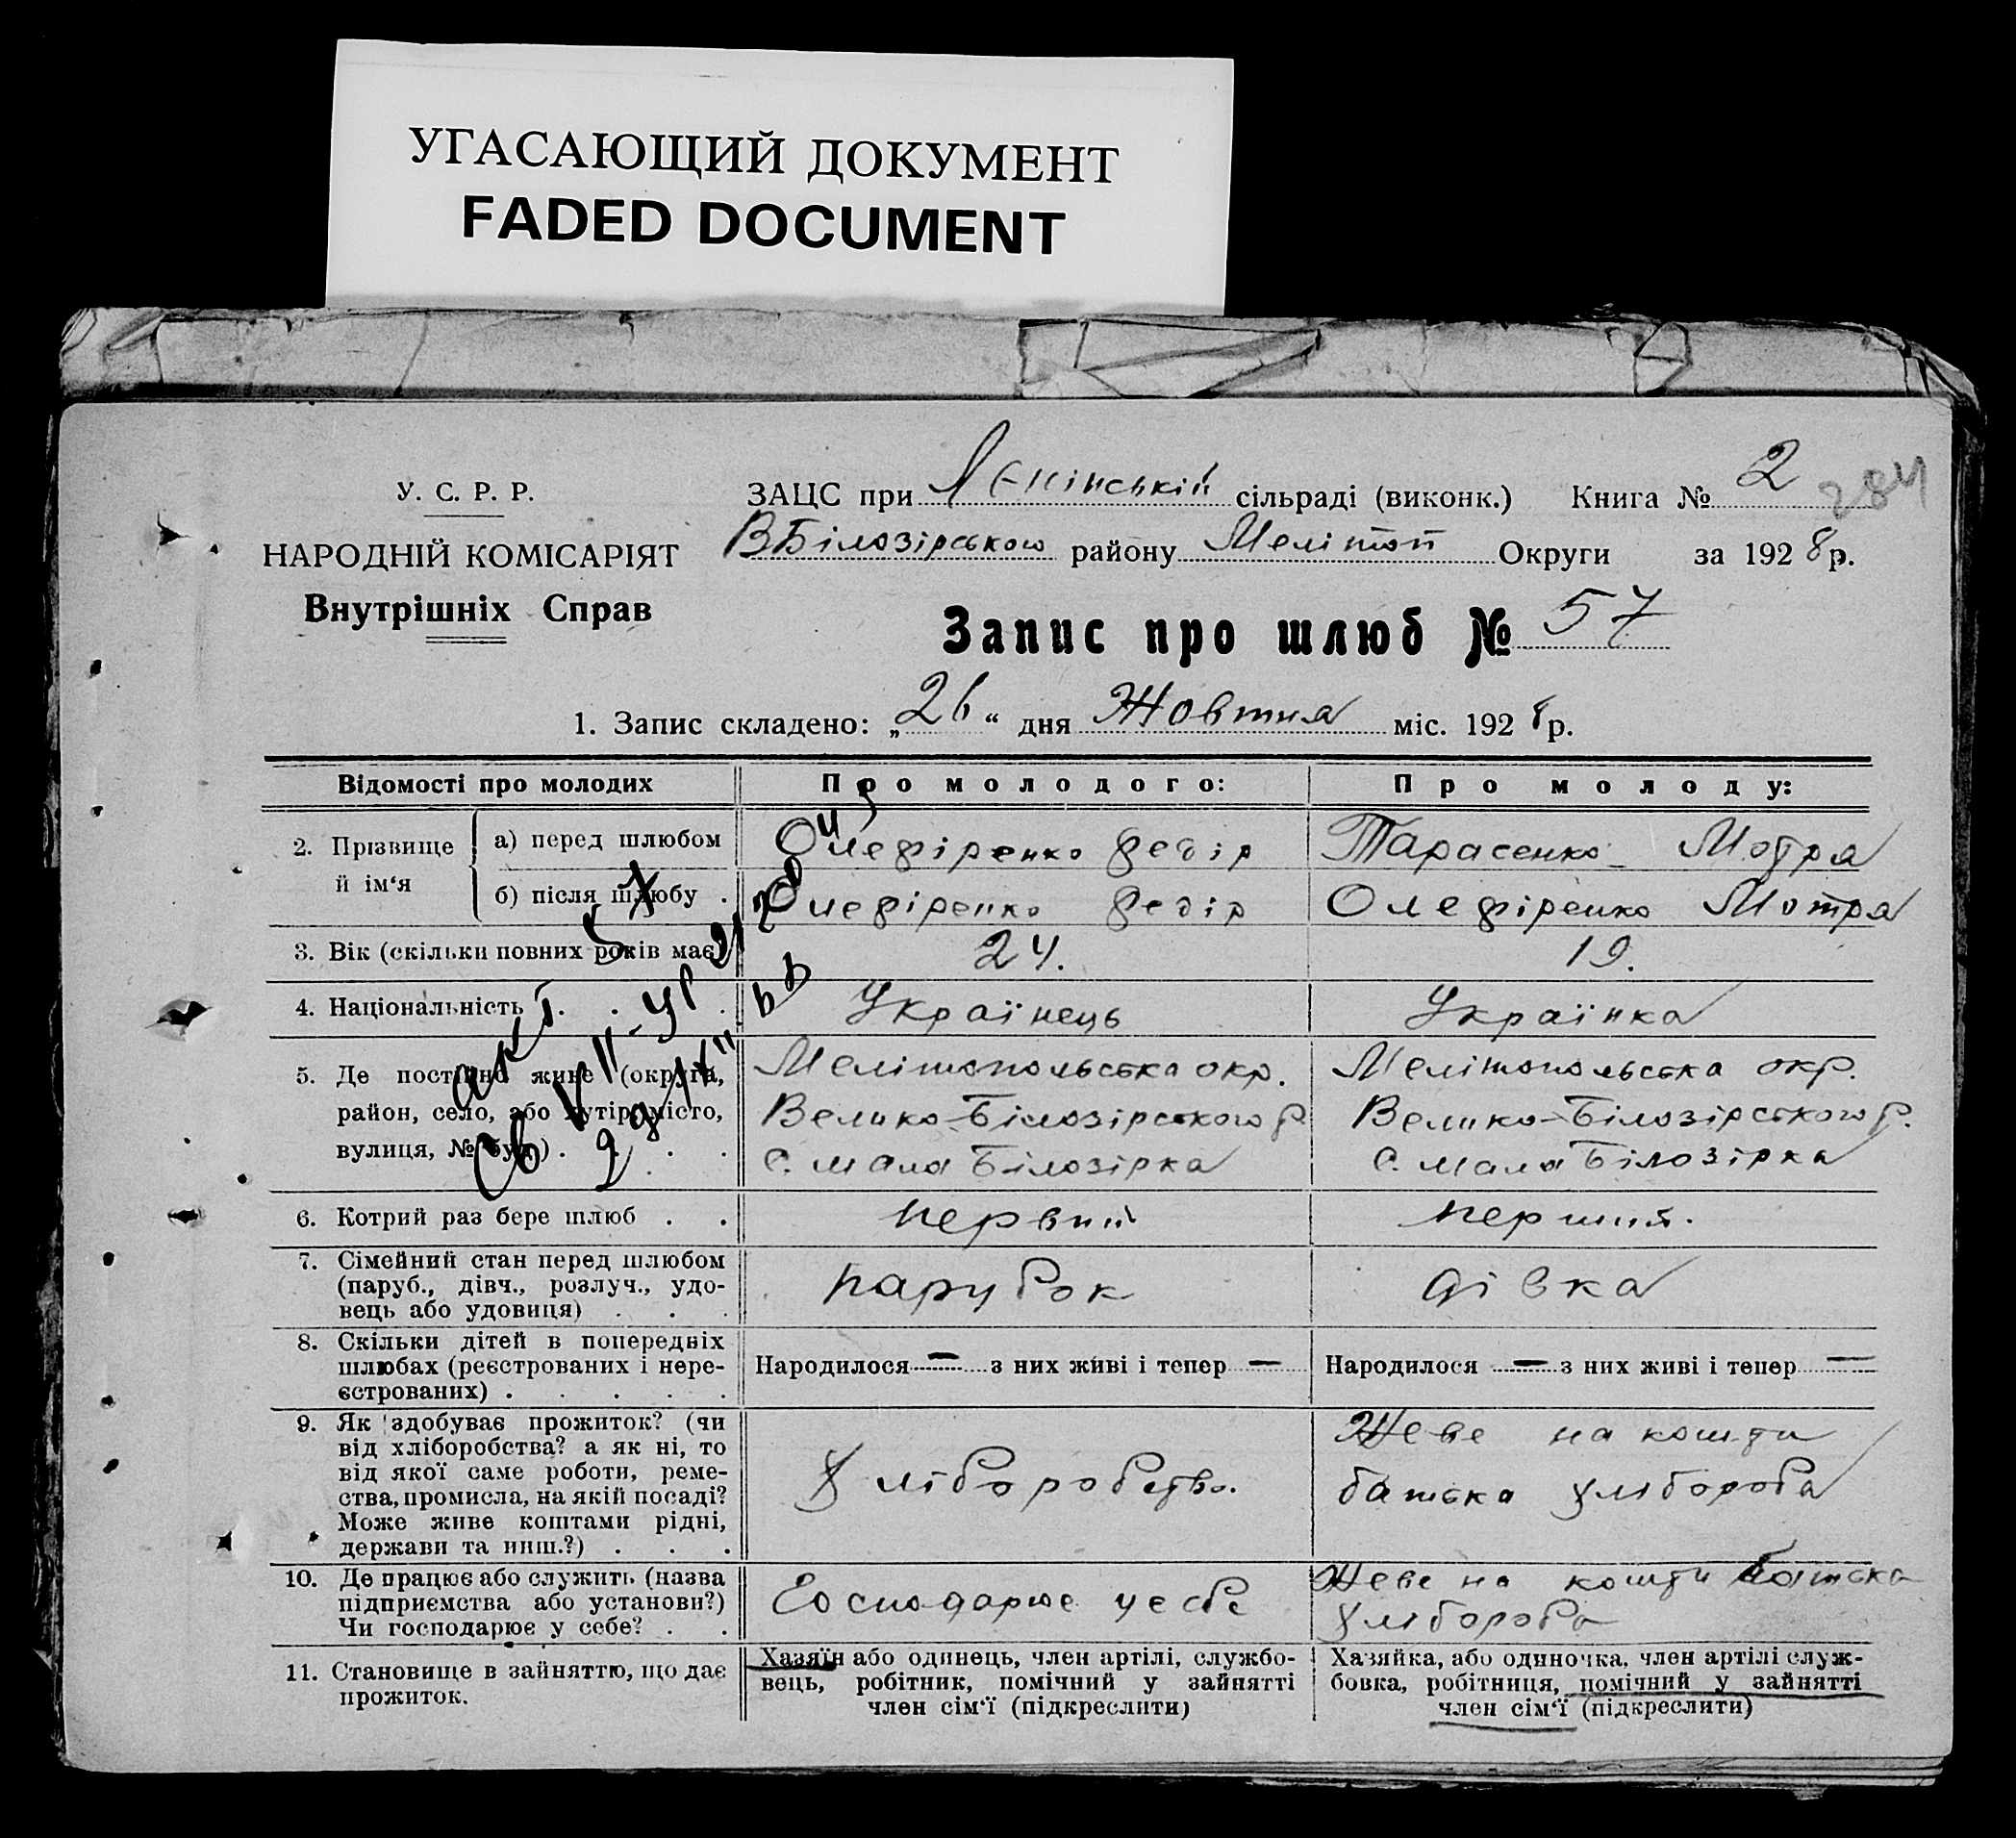 УГАСАЮЩИЙ ДОКУМЕНТ
FADED DOCUMENT
У. С. Р. Р.
НАРОДНІЙ КОМІСАРІЯТ
Внутрішніх Справ
ЗАЦС при Лєнінській сільраді (виконк.) Книга № 2 284
ВБілозірського району Меліто́п Округи за 1928 р.
Запис про шлюб № 57
1. Запис складено: „26“ дня Жовтня міс. 1928 р.
Відомості про молодих
Про молодого:
Про молоду:
2. Прізвище й ім‘я
а) перед шлюбом
Олефіренко Федір
Тарасенко Мотря
б) після шлюбу .
Олефіренко Федір
Олефіренко Мотря
3. Вік (скільки повних років має)
24.
19.
4. Національність . . .
Українець
Українка
5. Де постійно живе (округа,
район, село, або хутір, місто,
вулиця, № буд.) . . . .
Мелітопольська окр.
Велико-Білозірського р
с. мала Білозірка
Мелітопольська окр.
Велико-Білозірського р.
с. мала Білозірка
6. Котрий раз бере шлюб . .
первий
перший.
7. Сімейний стан перед шлюбом
(паруб., дівч., розлуч., удо-
вець або удовиця) . . .
парубок
дівка
8. Скільки дітей в попередніх
шлюбах (реєстрованих і нере-
єстрованих) . . . . .
Народилося — з них живі і тепер —
Народилося — з них живі і тепер —
9. Як здобуває прожиток? (чи
від хліборобства? а як ні, то
від якої саме роботи, реме-
ства, промисла, на якій посаді?
Може живе коштами рідні,
держави та инш.?) . . .
Хліборобство.
Жеве на кошти
батька хлібороба
10. Де працює або служить (назва
підприємства або установи?)
Чи господарює у себе? . .
Господарює у себе
Жеве на кошти батька
хлібороба
11. Становище в зайняттю, що дає
прожиток.
Хазяїн або одинець, член артілі, службо-
вець, робітник, помічний у зайнятті
член сім‘ї (підкреслити)
Хазяйка, або одиночка, член артілі служ-
бовка, робітниця, помічний у зайнятті
член сім‘ї (підкреслити)